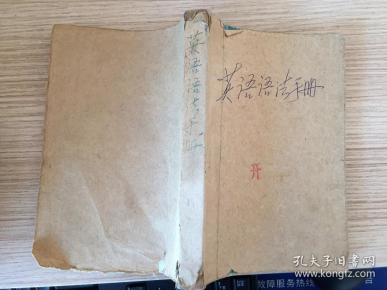 英语语法手册
英语语法手册
开
孔夫子旧书网
故障服务热线